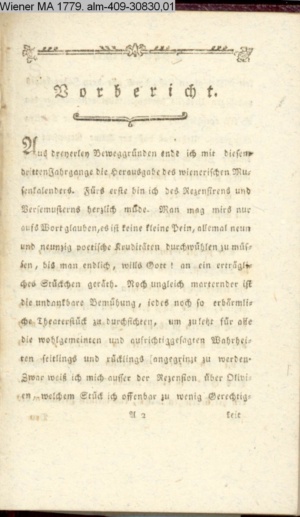 Wiener MA 1779. alm-409-30830,01
Vorbericht.
Aus dreyerley Beweggründen ende ich mit diesem
dritten Jahrgange die Herausgabe des wienerischen Mu-
senkalenders. Fürs erste bin ich des Rezensirens und
Versemusterns herzlich müde. Man mag mirs nur
aufs Wort glauben, es ist keine kleine Pein, allemal neun
und neunzig poetische Kruditäten durchwühlen zu müs-
sen, bis man endlich, wills Gott! an ein erträgli-
ches Stückchen geräth. Noch ungleich marternder ist
die undankbare Bemühung, jedes noch so erbärmli-
che Theaterstück zu durchsichten, um zuletzt für alle
die wohlgemeinten und aufrichtiggesagten Wahrhei-
ten seitlings und rücklings angegrinzt zu werden.
Zwar weiß ich mich ausser der Rezension über Olivi-
en welchem Stück ich offenbar zu wenig Gerechtig-
A 2 keit